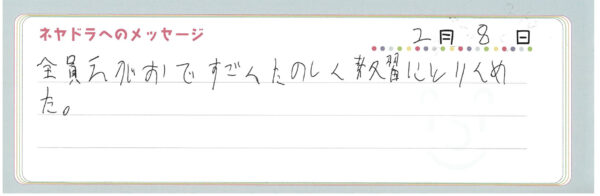 ネヤドラへのメッセージ 2月8日
全員えがおですごくたのしく教習にとりくめ
た。